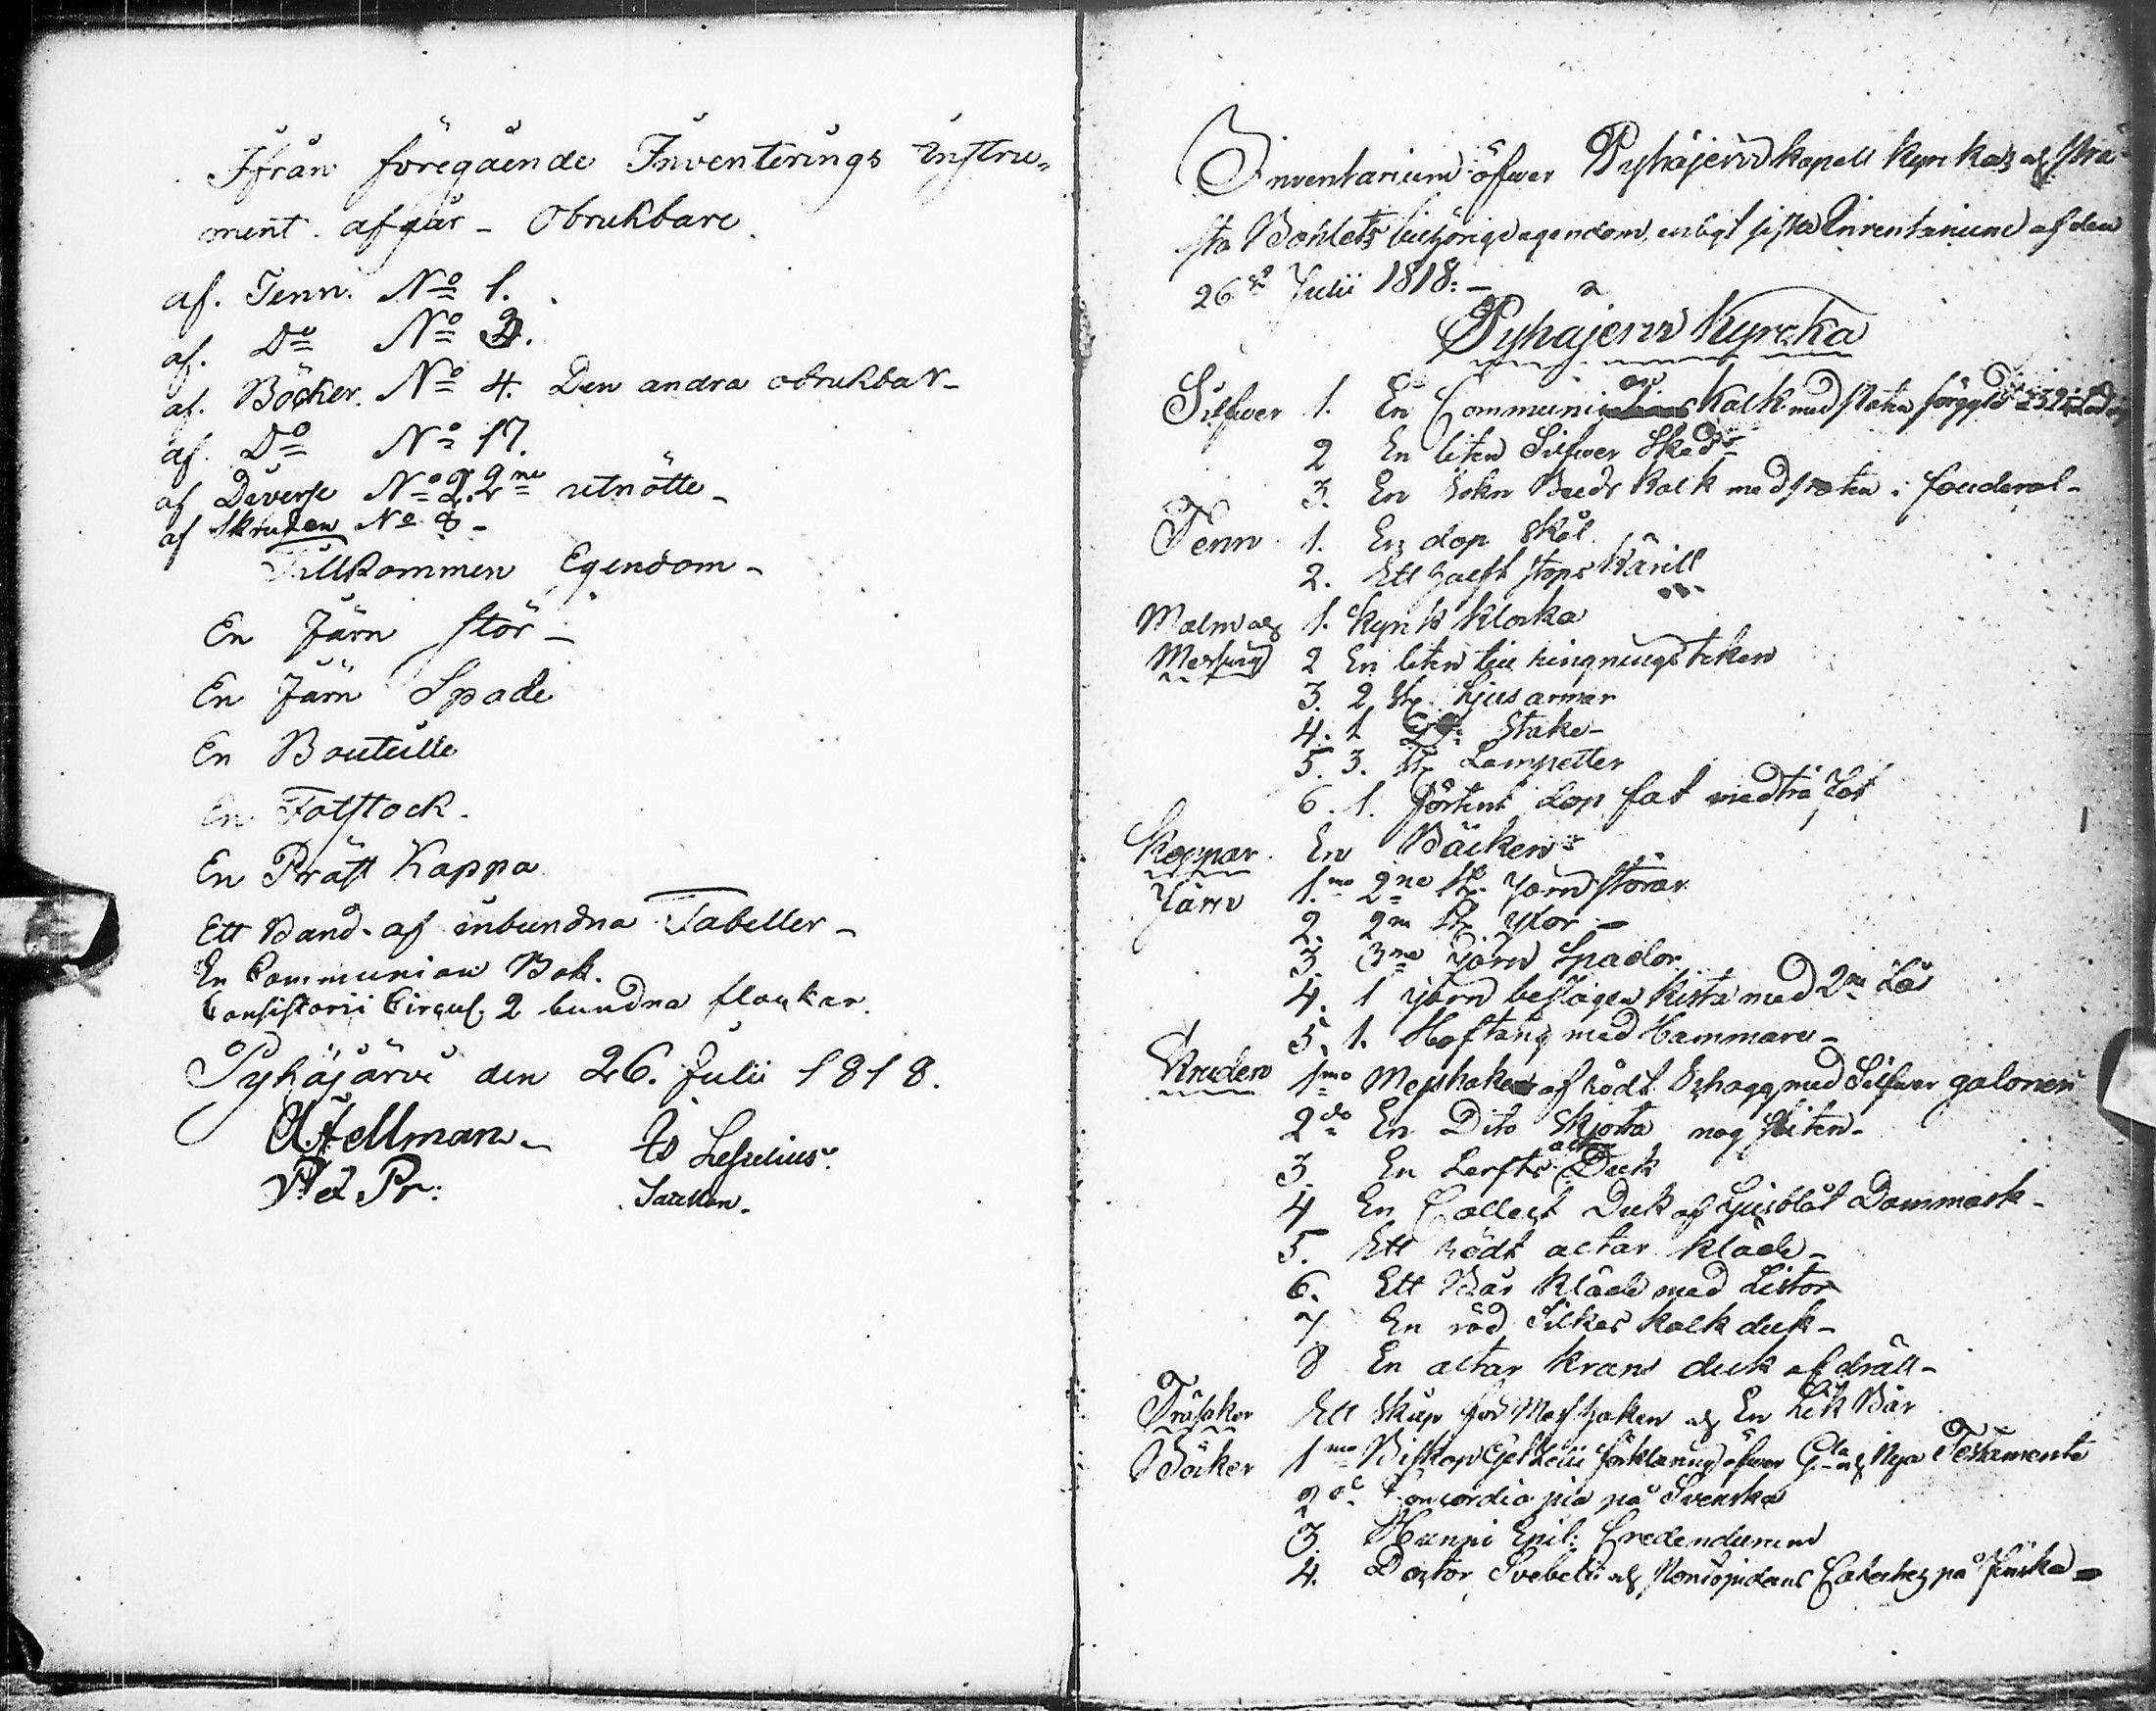 Ifrån föregående Inventerings Instru-
ment. afgår - Obrukbare.
af. Tenn. No 1.
af. Do No 2.
af. Böcker. No 4. Den andra obrukbar-
af. Do No 17.
af Diverse No 2. 2ne utnötte-
af Skruden No 8-
Tillkommen Egendom-
En Järn stör-
En Järn Spade
En Bouteille
En Fotstock.
En Präst Kappa
Ett Band. af inbundna Tabeller-
En Communion Bok.
Consistorii Circul. 2 bundna flockar.
Pyhäjärvi den 26. Julii 1818.
Fellman-
P. L. Pr:
Inventarium öfwer Pyhäjerwi kapell kyrkas och Prä-
sta Bohlets tillhörige egendom, enligt sista Inventarium af den
26de Julii 1818:-
Pyhäjerwi Kyrcka
Silfwer 1. En Communion Kalk med Paten förgyld 32 Lod
2 En liten Silfwer Sked-
3. En Sokn Buds Kalk med paten i fouderal-
Tenn. 1. En dop Skål.
2. Ett halft stops Kärill
Malm och 1. Kyrk Klocka
Messing 2 En liten till ringnings teken
3. 2 st. Ljus armar
4. 1 Do Stake-
5. 3. st. Lampetter
6. 1. förtent dop fat med trä fot
Koppar. En Bäcken-
Järn 1.mo 2ne st. Jern störar
2. 2ne st. Yxor-
3 3ne Jern Spador.
4. 1 Jern beslagen Kista med 2ne Lås
5. 1. Hoftång med Hammare-
Skruden 1mo Messhake af rödt Schagg med Silfwer galoner
2do En Dito Skjorta nog sliten-
3. En Lerfts altar Duk
4 En Collect Duk af Ljusblåt Dammask-
5. Ett rödt altar kläde-
6. Ett Bår Kläde med Listor
7 En röd Silkes Kalk duk-
8 En altar krans duk af dräll-
Träsaker Ett Skåp för Mess haken och En Lik Bår
Böcker 1mo Biskop Gezelii förklaring öfwer Gla och Nya Testamente
2do Concordia pia på Svenska
3. Hunni Epit: Credendorum
4. Doctor Svebelii och Pontoppidans Cateches på finska-